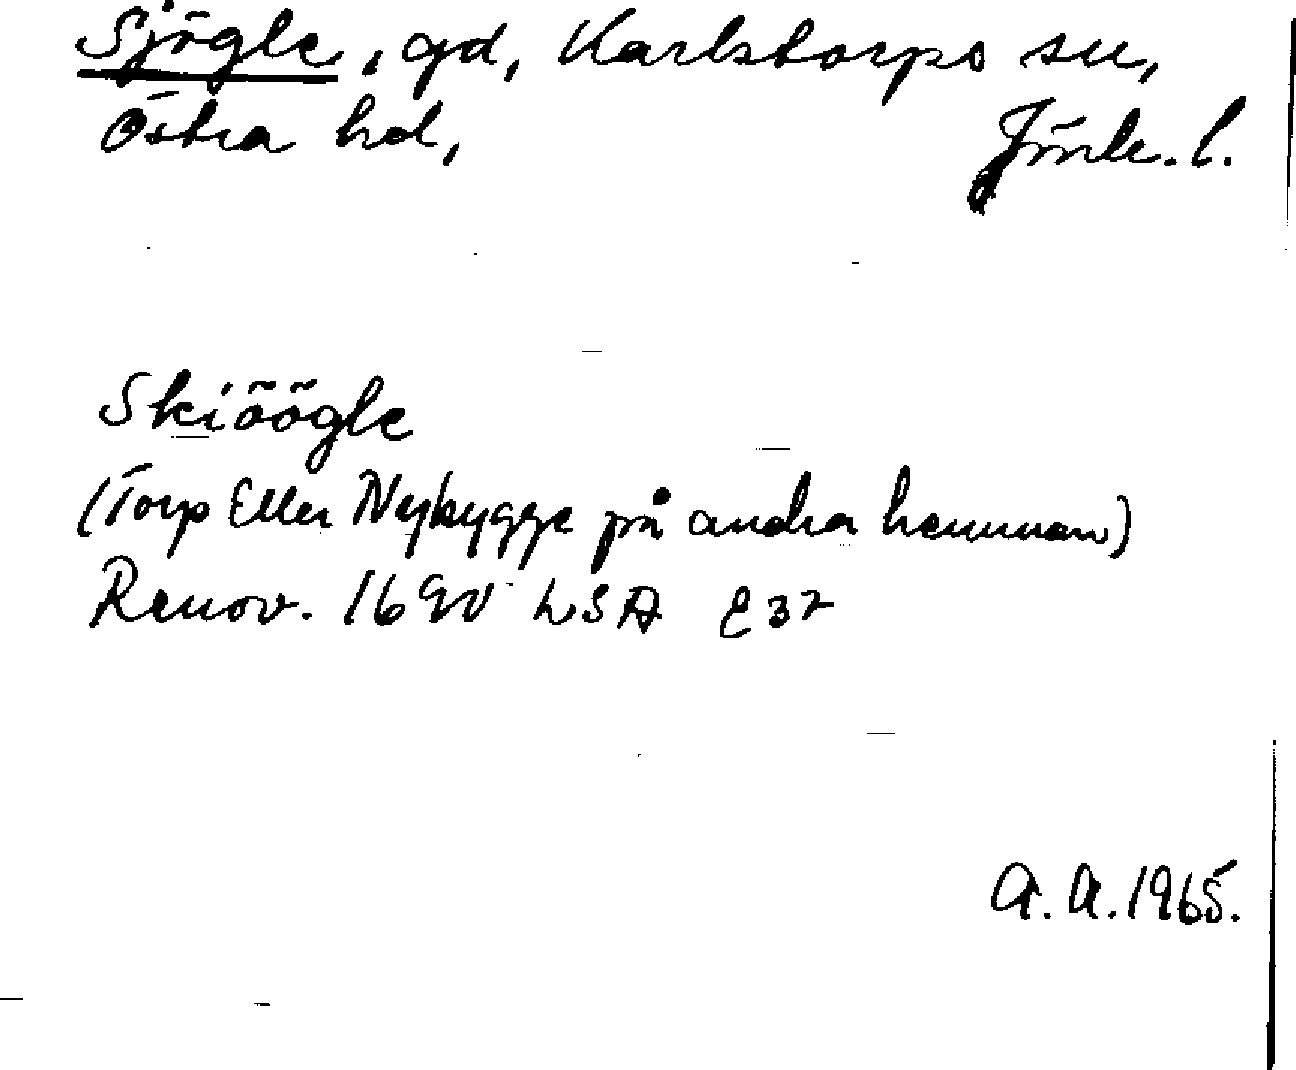 Sjögle, gd, Karlstorps sn,
Östra hd, Jönk. l.
Skiöögle
(Torp Eller Nybygge på andra hemman)
Renov. 1690 LSA E32
A. A. 1965.